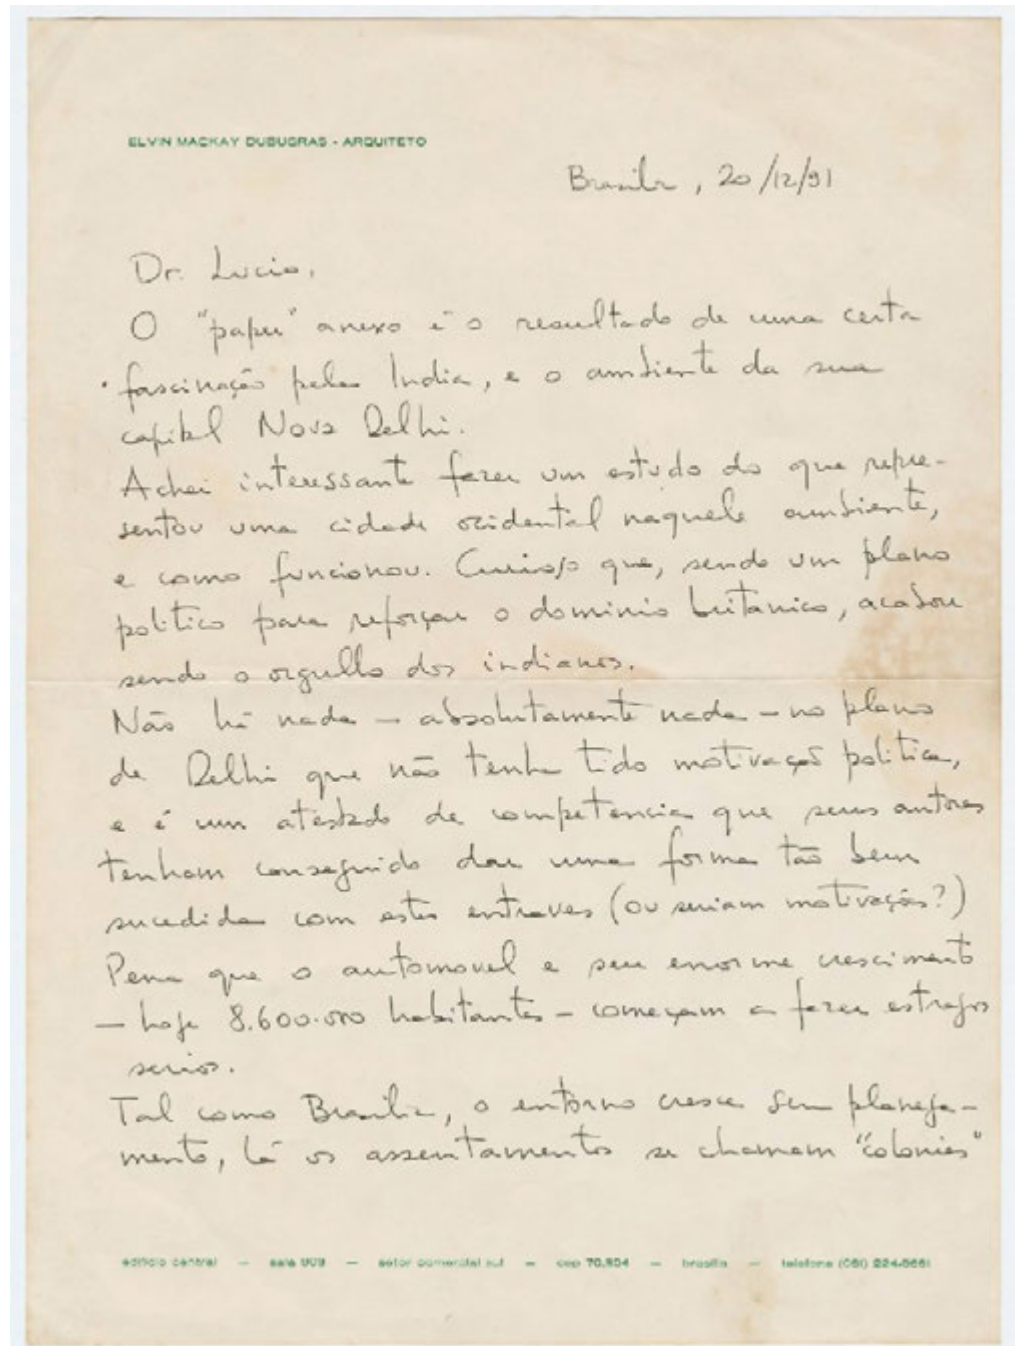 ELVIN MACKAY DUBUGRAS - ARQUITETO
Brasilia, 20/12/91
Dr. Lucio,
O "paper" anexo é o resultado de uma certa
fascinação pela India, e o ambiente da sua
capital Nova Delhi.
Achei interessante fazer um estudo do que repre-
sentou uma cidade ocidental naquele ambiente,
e como funcionou. Curioso que, sendo um plano
politico para reforçar o dominio britanico, acabou
sendo o orgullo dos indianos.
Não há nada - absolutamente nada - no plano
de Delhi que não tenha tido motivação politica,
e é um atestado de competencia que seus autores
tenham conseguido dar uma forma tão bem
sucedida com estes entraves (ou seriam motivações?)
Pena que o automovel e seu enorme crescimento
- hoje 8.600.000 habitantes - começam a fazer estragos
serios.
Tal como Brasilia, o entorno cresce sem planeja-
mento, lá os assentamentos se chamam "colonies"
edificio central - sala 909 - setor comercial sul - cep 70.304 - brasilia - telefone (061)